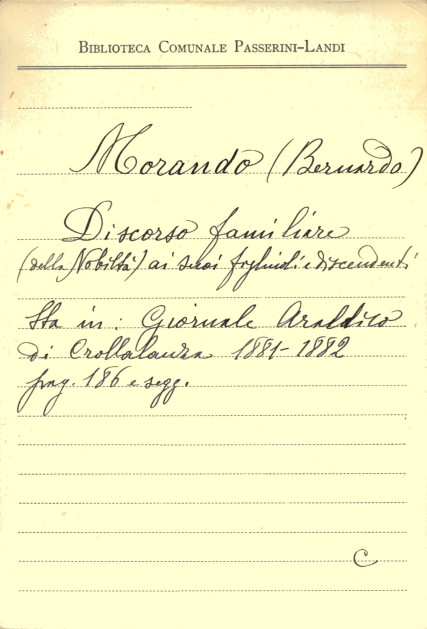 BIBLIOTECA COMUNALE PASSERINI-LANDI
Morando (Bernardo)
Discorso familiare
(della Nobiltà) ai suoi figliuoli e discendenti
Sta in: Giornale Araldico
di Crollalanza 1881-1882
pag. 186 e segg.
C